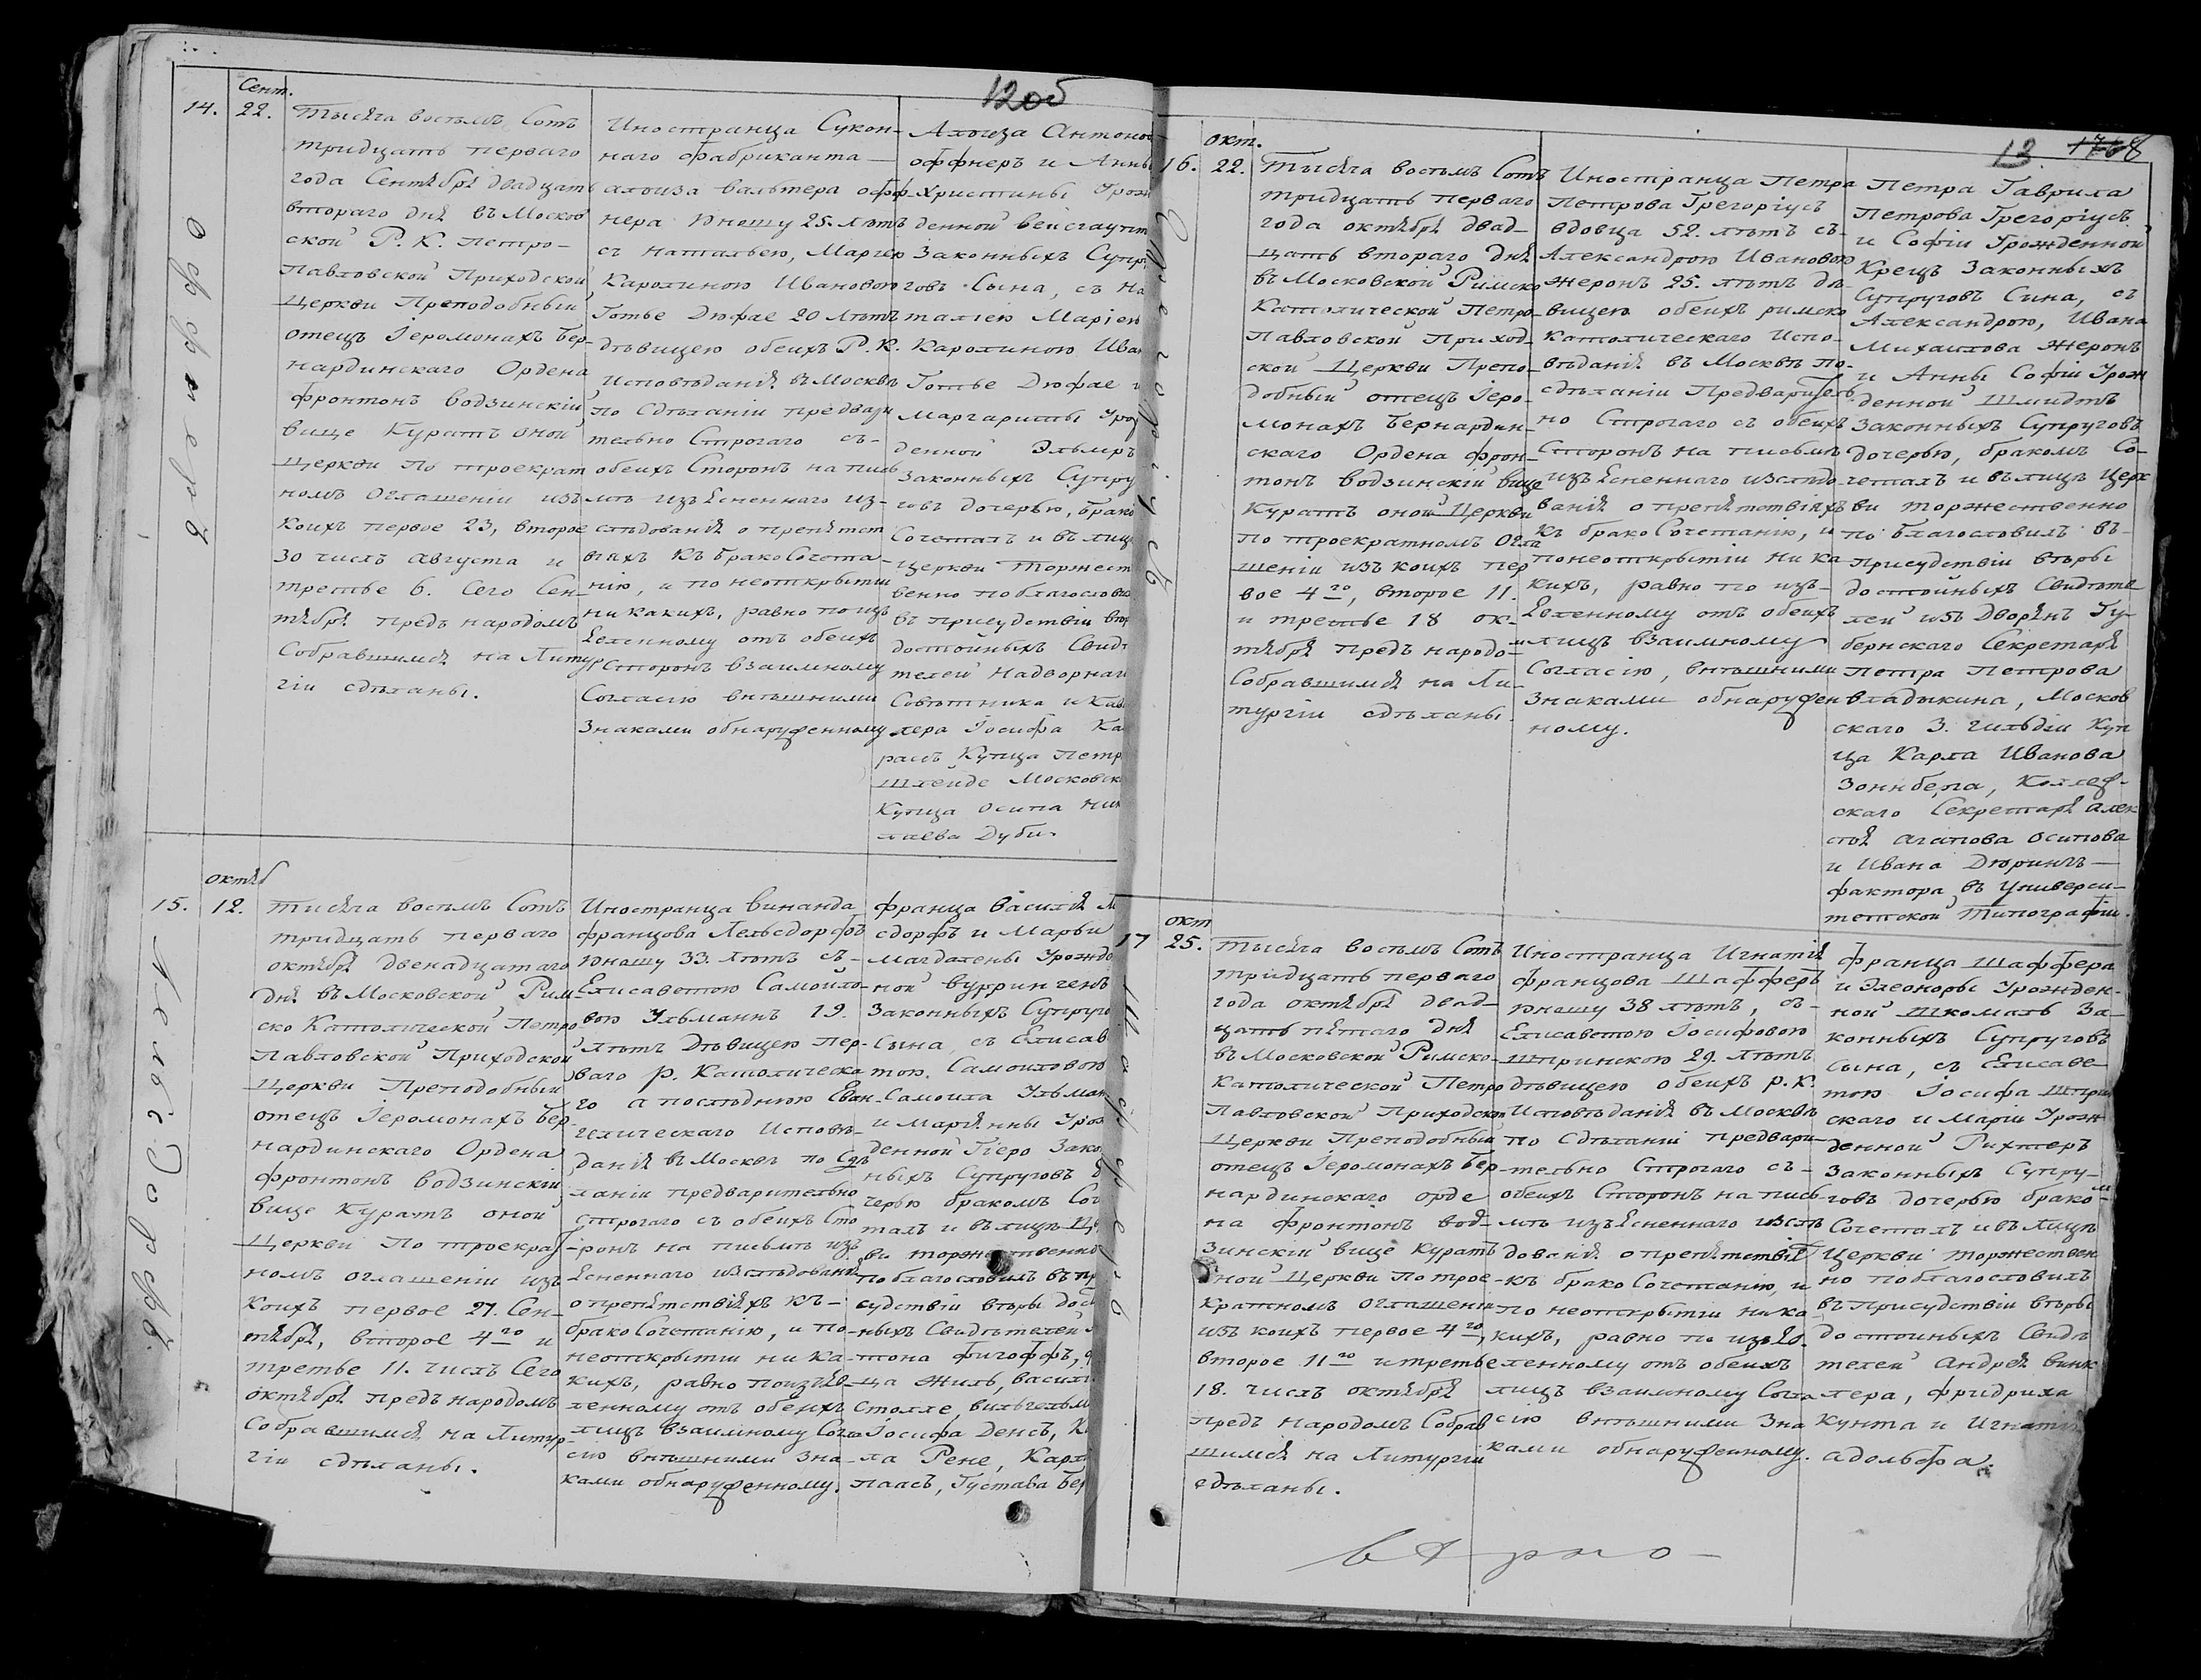 12об
Сент.
14.
22.
Оффнеръ
Тысяча восемь Сотъ
тридцать перваго
года Сентября двадцать
втораго дня въ Москов
ской Р. К. Петро-
Павловской Приходской
Церкви Преподобный
отецъ Іеромонахъ Бер-
нардинскаго Ордена
Фронтонъ Водзинскій
вице Куратъ оной
Церкви По троекрат
номъ Оглашеніи изъ
коихъ первое 23, второе
30 числъ Августа и
третье 6. Сего Сен-
тября предъ народомъ
Собравшимся на Литур
гіи сдѣланы.
Иностранца Сукон-
наго фабриканта
Алоиза Вальтера Офф
нера Юношу 25. лѣтъ
съ Натальею, Маріею
Каролиною Ивановою
Готье Дюфае 20 лѣтъ
дѣвицею обеихъ Р. К.
Исповѣданія въ Москвѣ
по Сдѣланіи предвари
тельно Строгаго съ-
обеихъ Сторонъ на пись
мѣ изъясненнаго из-
слѣдованія о препятст
віяхъ къ бракосочета-
нію, и по неоткрытіи
ни какихъ, равно по изъ
явленному отъ обеихъ
Сторонъ взаимному
Согласію внѣшними
Знаками обнаруженному
Алоиза Антонов
Оффнеръ и Анны
Христины Урож
денной Вейсгаупт
Законныхъ Супру
говъ Сына, съ На
таліею Маріею
Каролиною Иван
Готье Дюфае и
Маргариты Урож
денной Эльмръ
Законныхъ Супру
говъ дочерью, брако
Сочеталъ и въ лицѣ
Церкви Торжест
венно поблагослови
въ присудствіи вѣр
достойныхъ Свидѣ
телей Надворнаго
Совѣтника и Кава
лера Іосифа Ка
расъ Купца Петр
Шленде Московск
Купца Осипа Ник
лаева Дуби.
Октяб
15.
12.
Лелсдорфъ
Тысяча восемь Сотъ
тридцать перваго
октября двенадцатаго
дня въ Московской Рим-
ско Католической Петро
Павловской Приходской
Церкви Преподобный
отецъ Іеромонахъ Бер-
нардинскаго Ордена
Фронтонъ Водзинскій
Вице Куратъ оной
Церкви По троекрат
номъ оглашеніи изъ
коихъ первое 27. Сен-
тября, второе 4го и
третье 11. числъ Сего
октября предъ народомъ
Собравшимся на Литур
гіи сдѣланы.
Иностранца Винанда
Францова Лельсдорфъ
Юношу 33. лѣтъ съ-
Елисаветою Самойло-
вою Ульманнъ 19.
лѣтъ Дѣвицею пер-
ваго Р. Католическа
го а послѣднюю Еван-
гелическаго Исповѣ-
данія въ Москвѣ по Сдѣ
ланіи предварительно
Строгаго съ обеихъ Сто
ронъ на письмѣ изъ
ясненнаго изслѣдованія
о препятствіяхъ къ-
бракосочетанію, и по-
неоткрытіи ни ка-
кихъ, равно по изъяв-
ленному отъ обеихъ
лицъ взаимному Согла
сію внѣшними Зна-
ками обнаруженному.
Франца Василія Л
сдорфъ и Марьи
Магдалены Урожде
ной Вуррингенъ
Законныхъ Супруго
Сына, съ Елисаве
тою. Самоиловою
Самоила Ульман
и Маріянны Урож
денной Гіеро Зако
ныхъ Супруговъ д
черью бракомъ Соч
талъ и въ лицѣ Це
ви торжественно
поблагословилъ въ пр
судствіи вѣры дос
ныхъ Свидѣтелей А
тона Фигоффъ,
ца Жиль, Васил
Столле, Вильгельм
Іосифа Денсъ, К
ла Рене, Карл
паасъ, Густава Бер
13. 1768
окт.
16.
22.
Грегоріусъ
Тысяча восемь Сотъ
тридцать перваго
года октября двад-
цать втораго дня
въ Московской Римско
Католической Петро-
Павловской Приход-
ской Церкви Препо-
добный отецъ Іеро-
монахъ Бернардин-
скаго Ордена Фрон-
тонъ Водзинскій Вице
Куратъ оной Церкви
по троекратномъ Огла
шеніи изъ коихъ пер
вое 4го, второе 11.
и третье 18 ок-
тября предъ народомъ
Собравшимся на Ли-
тургіи сдѣланы.
Иностранца Петра
Петрова Грегоріусъ
вдовца 52. лѣтъ съ-
Александрою Ивановою
Жеронъ 25. лѣтъ дѣ-
вицею обеихъ римско
Католическаго Испо-
вѣданія въ Москвѣ По-
сдѣланіи Предваритель
но Строгаго съ обеихъ
Сторонъ на письмѣ
изъясненнаго изслѣдо-
ванія о препятствіяхъ
къ бракосочетанію, и
по неоткрытіи ни ка
кихъ, равно по изъ-
явленному отъ обеихъ
лицъ взаимному
Согласію, внѣшними
Знаками обнаружен
ному.
Петра Гаврила
Петрова Грегоріусъ
и Софіи Урожденной
Крецъ Законныхъ
Супруговъ Сына, съ
Александрою, Ивана
Михаилова Жеронъ
и Анны Софіи Урож
денной Шмидтъ
Законныхъ Супруговъ
дочерью, бракомъ Со-
четалъ и въ лицѣ Церк
ви торжественно
по благословилъ въ-
Присудствіи вѣры
достойныхъ Свидѣте
лей изъ Дворянъ Гу-
бернскаго Секретаря
Петра Петрова
Владыкина, Москов
скаго 3. гильдіи Куп
ца Карла Иванова
Зоннберга, Коллеж-
скаго Секретаря Алек
сѣя Агапова Осипова
и Ивана Дюрингъ
фактора въ Универси-
тетской Типографіи.
окт
17
25.
Шафферъ
Тысяча восемь Сотъ
тридцать перваго
года октября двад-
цать пятаго дня
въ Московской Римско-
Католической Петро
Павловской Приходской
Церкви Преподобный
отецъ Іеромонахъ Бер-
нардинскаго орде
на Фронтонъ Вод-
зинскій вице Куратъ
оной Церкви По трое-
кратномъ оглашеніи
изъ коихъ первое 4го,
второе 11го и третье
18. числъ октября
предъ народомъ Собрав
шимся на Литургіи
сдѣланы.
Иностранца Игнатія
Францова Шафферъ
Юношу 38 лѣтъ, съ-
Елисаветою Іосифовою
Штринскою 29. лѣтъ
дѣвицею обеихъ Р. К.
Исповѣданія въ Москвѣ
по Сдѣланіи предвари-
тельно Строгаго съ-
обеихъ Сторонъ на пись
мѣ изъясненнаго изслѣ
дованія о препятствіях
къ бракосочетанію, и
по неоткрытіи ни ка
кихъ, равно по изъяв-
ленному отъ обеихъ
лицъ взаимному Согла
сію внѣшними Зна
ками обнаруженному.
Франца Шаффера
и Элеоноры Урожден-
ной Шкомалъ За-
конныхъ Супруговъ
Сына, съ Елисаве-
тою Іосифа Штрин
скаго и Маріи Урож
денной Рихтеръ
Законныхъ Супру-
говъ дочерью бракомъ
Сочеталъ и въ лицѣ
Церкви торжествен
но поблагословилъ
въ Присудствіи вѣры
достойныхъ Свидѣ
телей Андрея Винк
лера, Фридриха
Кунта и Игнатія
Адольфа.
вѣрно